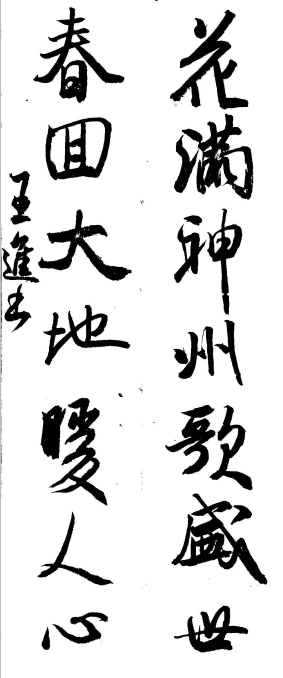 花滿神州歌盛世
春回大地暖人心
王進書